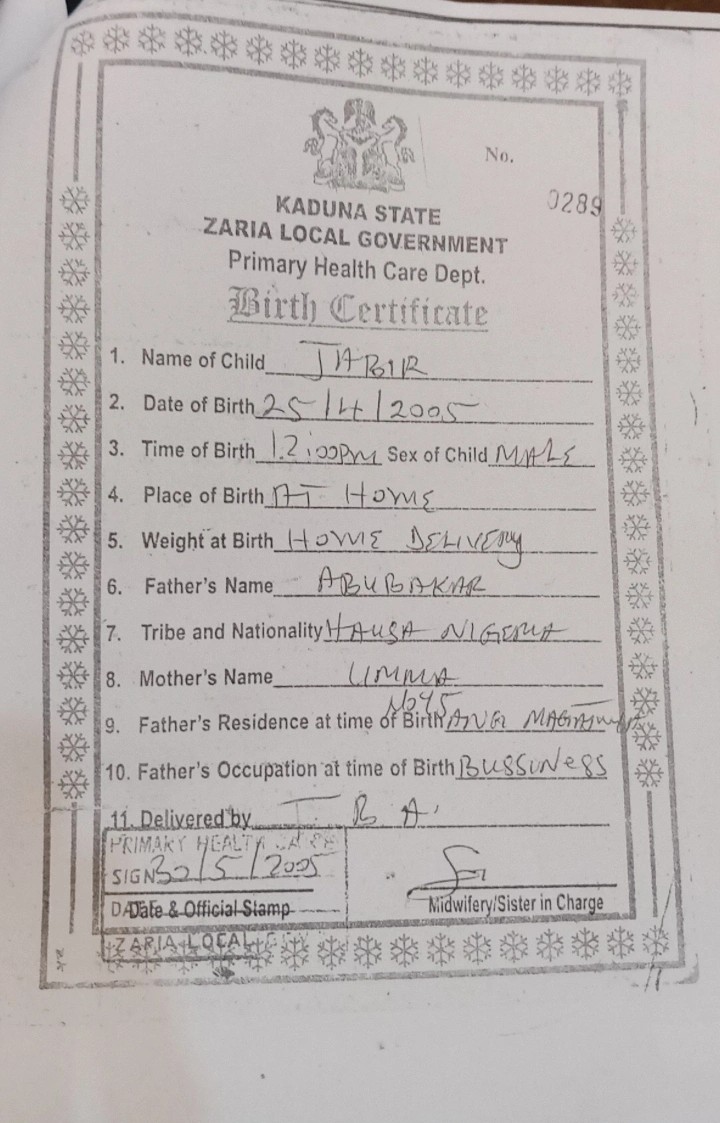 No.
0289
KADUNA STATE
ZARIA LOCAL GOVERNMENT
Primary Health Care Dept.
Birth Certificate
1. Name of Child JABIR
2. Date of Birth 25/4/2005
3. Time of Birth 12:00pm Sex of Child MALE
4. Place of Birth AT HOME
5. Weight at Birth HOME DELIVERY
6. Father's Name ABUBAKAR
7. Tribe and Nationality HAUSA NIGERIA
8. Mother's Name UMMA
No45
9. Father's Residence at time of Birth ANG MAGAJIYA
10. Father's Occupation at time of Birth BUSSINESS
11. Delivered by T. B. A.
PRIMARY HEALTH CARE
SIGN 30/5/2005
Date & Official Stamp
Midwifery/Sister in Charge
ZARIA LOCAL